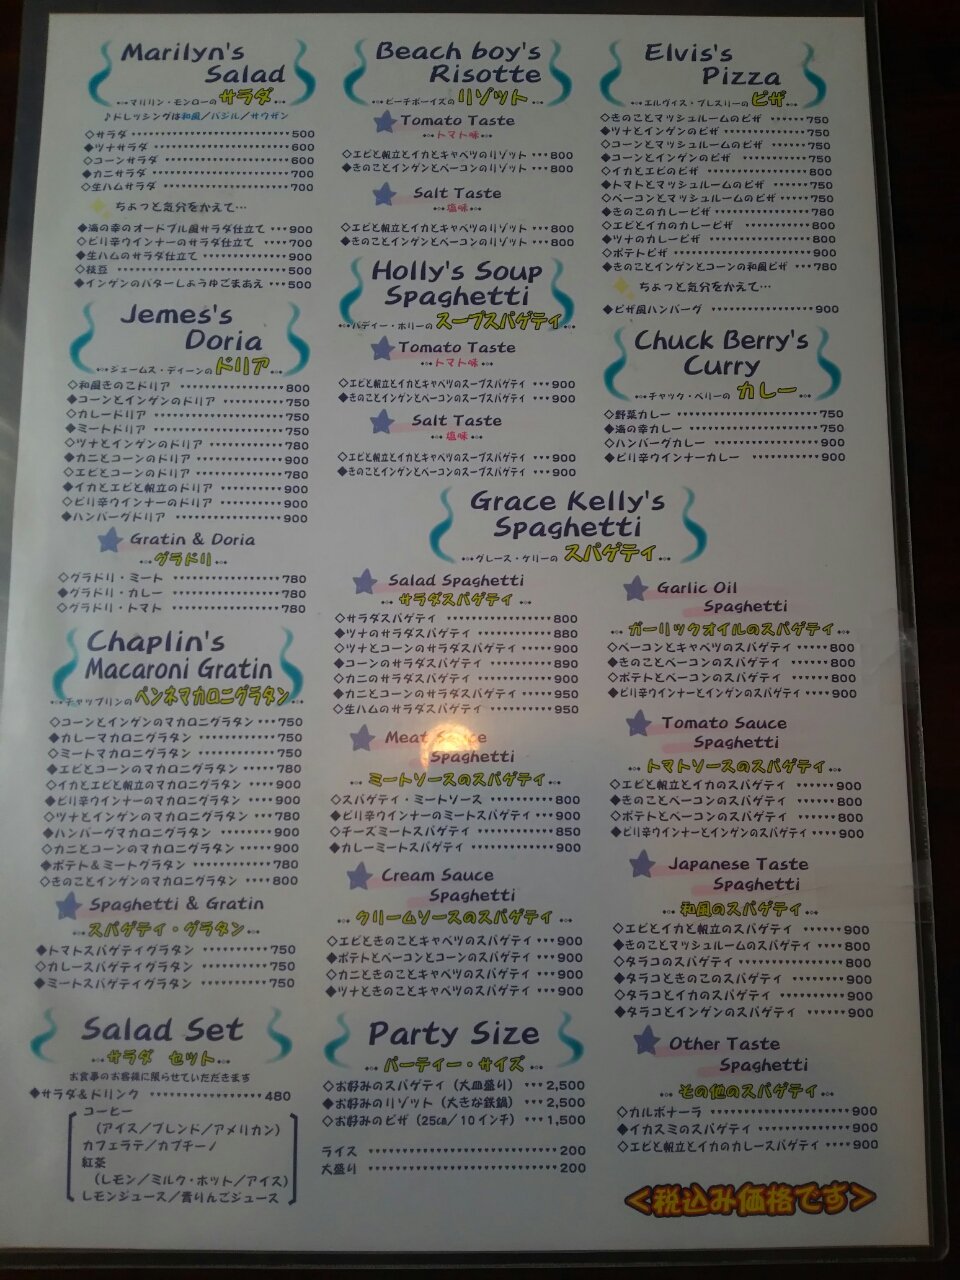 Marilyn's
Salad
マリリン・モンローの サラダ
♪ドレッシングは和風／バジル／サウザン
◇サラダ 500
◆ツナサラダ 600
◇コーンサラダ 600
◆カニサラダ 700
◇生ハムサラダ 700
ちょっと気分をかえて…
◆海の幸のオードブル風サラダ仕立て 900
◇ピリ辛ウインナーのサラダ仕立て 700
◆生ハムのサラダ仕立て 900
◇枝豆 500
◆インゲンのバターしょうゆごまあえ 500
Jemes's
Doria
ジェームス・ディーンの ドリア
◇和風きのこドリア 800
◆コーンとインゲンのドリア 750
◇カレードリア 750
◆ミートドリア 750
◇ツナとインゲンのドリア 780
◆カニとコーンのドリア 900
◇エビとコーンのドリア 780
◆イカとエビと帆立のドリア 900
◇ピリ辛ウインナーのドリア 900
◆ハンバーグドリア 900
Gratin & Doria
グラドリ
◇グラドリ・ミート 780
◆グラドリ・カレー 780
◇グラドリ・トマト 780
Chaplin's
Macaroni Gratin
チャップリンの ペンネマカロニグラタン
◇コーンとインゲンのマカロニグラタン 750
◆カレーマカロニグラタン 750
◇ミートマカロニグラタン 750
◆エビとコーンのマカロニグラタン 780
◇イカとエビと帆立のマカロニグラタン 900
◆ピリ辛ウインナーのマカロニグラタン 900
◇ツナとインゲンのマカロニグラタン 780
◆ハンバーグマカロニグラタン 900
◇カニとコーンのマカロニグラタン 900
◆ポテト＆ミートグラタン 780
◇きのことインゲンのマカロニグラタン 800
Spaghetti & Gratin
スパゲティ・グラタン
◆トマトスパゲティグラタン 750
◇カレースパゲティグラタン 750
◆ミートスパゲティグラタン 750
Salad Set
サラダ セット
お食事のお客様に限らせていただきます
◆サラダ＆ドリンク 480
コーヒー
（アイス／ブレンド／アメリカン）
カフェラテ／カプチーノ
紅茶
（レモン／ミルク・ホット／アイス）
レモンジュース／青りんごジュース
Beach boy's
Risotte
ビーチボーイズの リゾット
Tomato Taste
トマト味
◇エビと帆立とイカとキャベツのリゾット 800
◆きのことインゲンとベーコンのリゾット 800
Salt Taste
塩味
◇エビと帆立とイカとキャベツのリゾット 800
◆きのことインゲンとベーコンのリゾット 800
Holly's Soup
Spaghetti
バディー・ホリーの スープスパゲティ
Tomato Taste
トマト味
◇エビと帆立とイカとキャベツのスープスパゲティ 900
◆きのことインゲンとベーコンのスープスパゲティ 900
Salt Taste
塩味
◇エビと帆立とイカとキャベツのスープスパゲティ 900
◆きのことインゲンとベーコンのスープスパゲティ 900
Elvis's
Pizza
エルヴィス・プレスリーの ピザ
◇きのことマッシュルームのピザ 750
◆ツナとインゲンのピザ 750
◇コーンとマッシュルームのピザ 750
◆コーンとインゲンのピザ 750
◇イカとエビのピザ 800
◆トマトとマッシュルームのピザ 750
◇ベーコンとマッシュルームのピザ 750
◆きのこのカレーピザ 780
◇エビとイカのカレーピザ 800
◆ツナのカレーピザ 800
◇ポテトピザ 800
◆きのことインゲンとコーンの和風ピザ 780
ちょっと気分をかえて…
◆ピザ風ハンバーグ 900
Chuck Berry's
Curry
チャック・ベリーの カレー
◇野菜カレー 750
◆海の幸カレー 750
◇ハンバーグカレー 900
◆ピリ辛ウインナーカレー 900
Grace Kelly's
Spaghetti
グレース・ケリーの スパゲティ
Salad Spaghetti
サラダスパゲティ
◇サラダスパゲティ 800
◆ツナのサラダスパゲティ 880
◇ツナとコーンのサラダスパゲティ 900
◆コーンのサラダスパゲティ 890
◇カニのサラダスパゲティ 900
◆カニとコーンのサラダスパゲティ 950
◇生ハムのサラダスパゲティ 950
Meat Sauce
Spaghetti
ミートソースのスパゲティ
◇スパゲティ・ミートソース 800
◆ピリ辛ウインナーのミートスパゲティ 900
◇チーズミートスパゲティ 850
◆カレーミートスパゲティ 900
Cream Sauce
Spaghetti
クリームソースのスパゲティ
◇エビときのことキャベツのスパゲティ 900
◆ポテトとベーコンとコーンのスパゲティ 900
◇カニときのことキャベツのスパゲティ 900
◆ツナときのことキャベツのスパゲティ 900
Garlic Oil
Spaghetti
ガーリックオイルのスパゲティ
◇ベーコンとキャベツのスパゲティ 800
◆きのことベーコンのスパゲティ 800
◇ポテトとベーコンのスパゲティ 800
◆ピリ辛ウインナーとインゲンのスパゲティ 900
Tomato Sauce
Spaghetti
トマトソースのスパゲティ
◇エビと帆立とイカのスパゲティ 900
◆きのことベーコンのスパゲティ 800
◇ポテトとベーコンのスパゲティ 800
◆ピリ辛ウインナーとインゲンのスパゲティ 900
Japanese Taste
Spaghetti
和風のスパゲティ
◇エビとイカと帆立のスパゲティ 900
◆きのことマッシュルームのスパゲティ 800
◇タラコのスパゲティ 800
◆タラコときのこのスパゲティ 900
◇タラコとイカのスパゲティ 900
◆タラコとインゲンのスパゲティ 900
Other Taste
Spaghetti
その他のスパゲティ
◇カルボナーラ 900
◆イカスミのスパゲティ 900
◇エビと帆立とイカのカレースパゲティ 900
Party Size
パーティー・サイズ
◇お好みのスパゲティ（大皿盛り） 2,500
◆お好みのリゾット（大きな鉄鍋） 2,500
◇お好みのピザ（25㎝／10インチ） 1,500
ライス 200
大盛り 200
＜税込み価格です＞